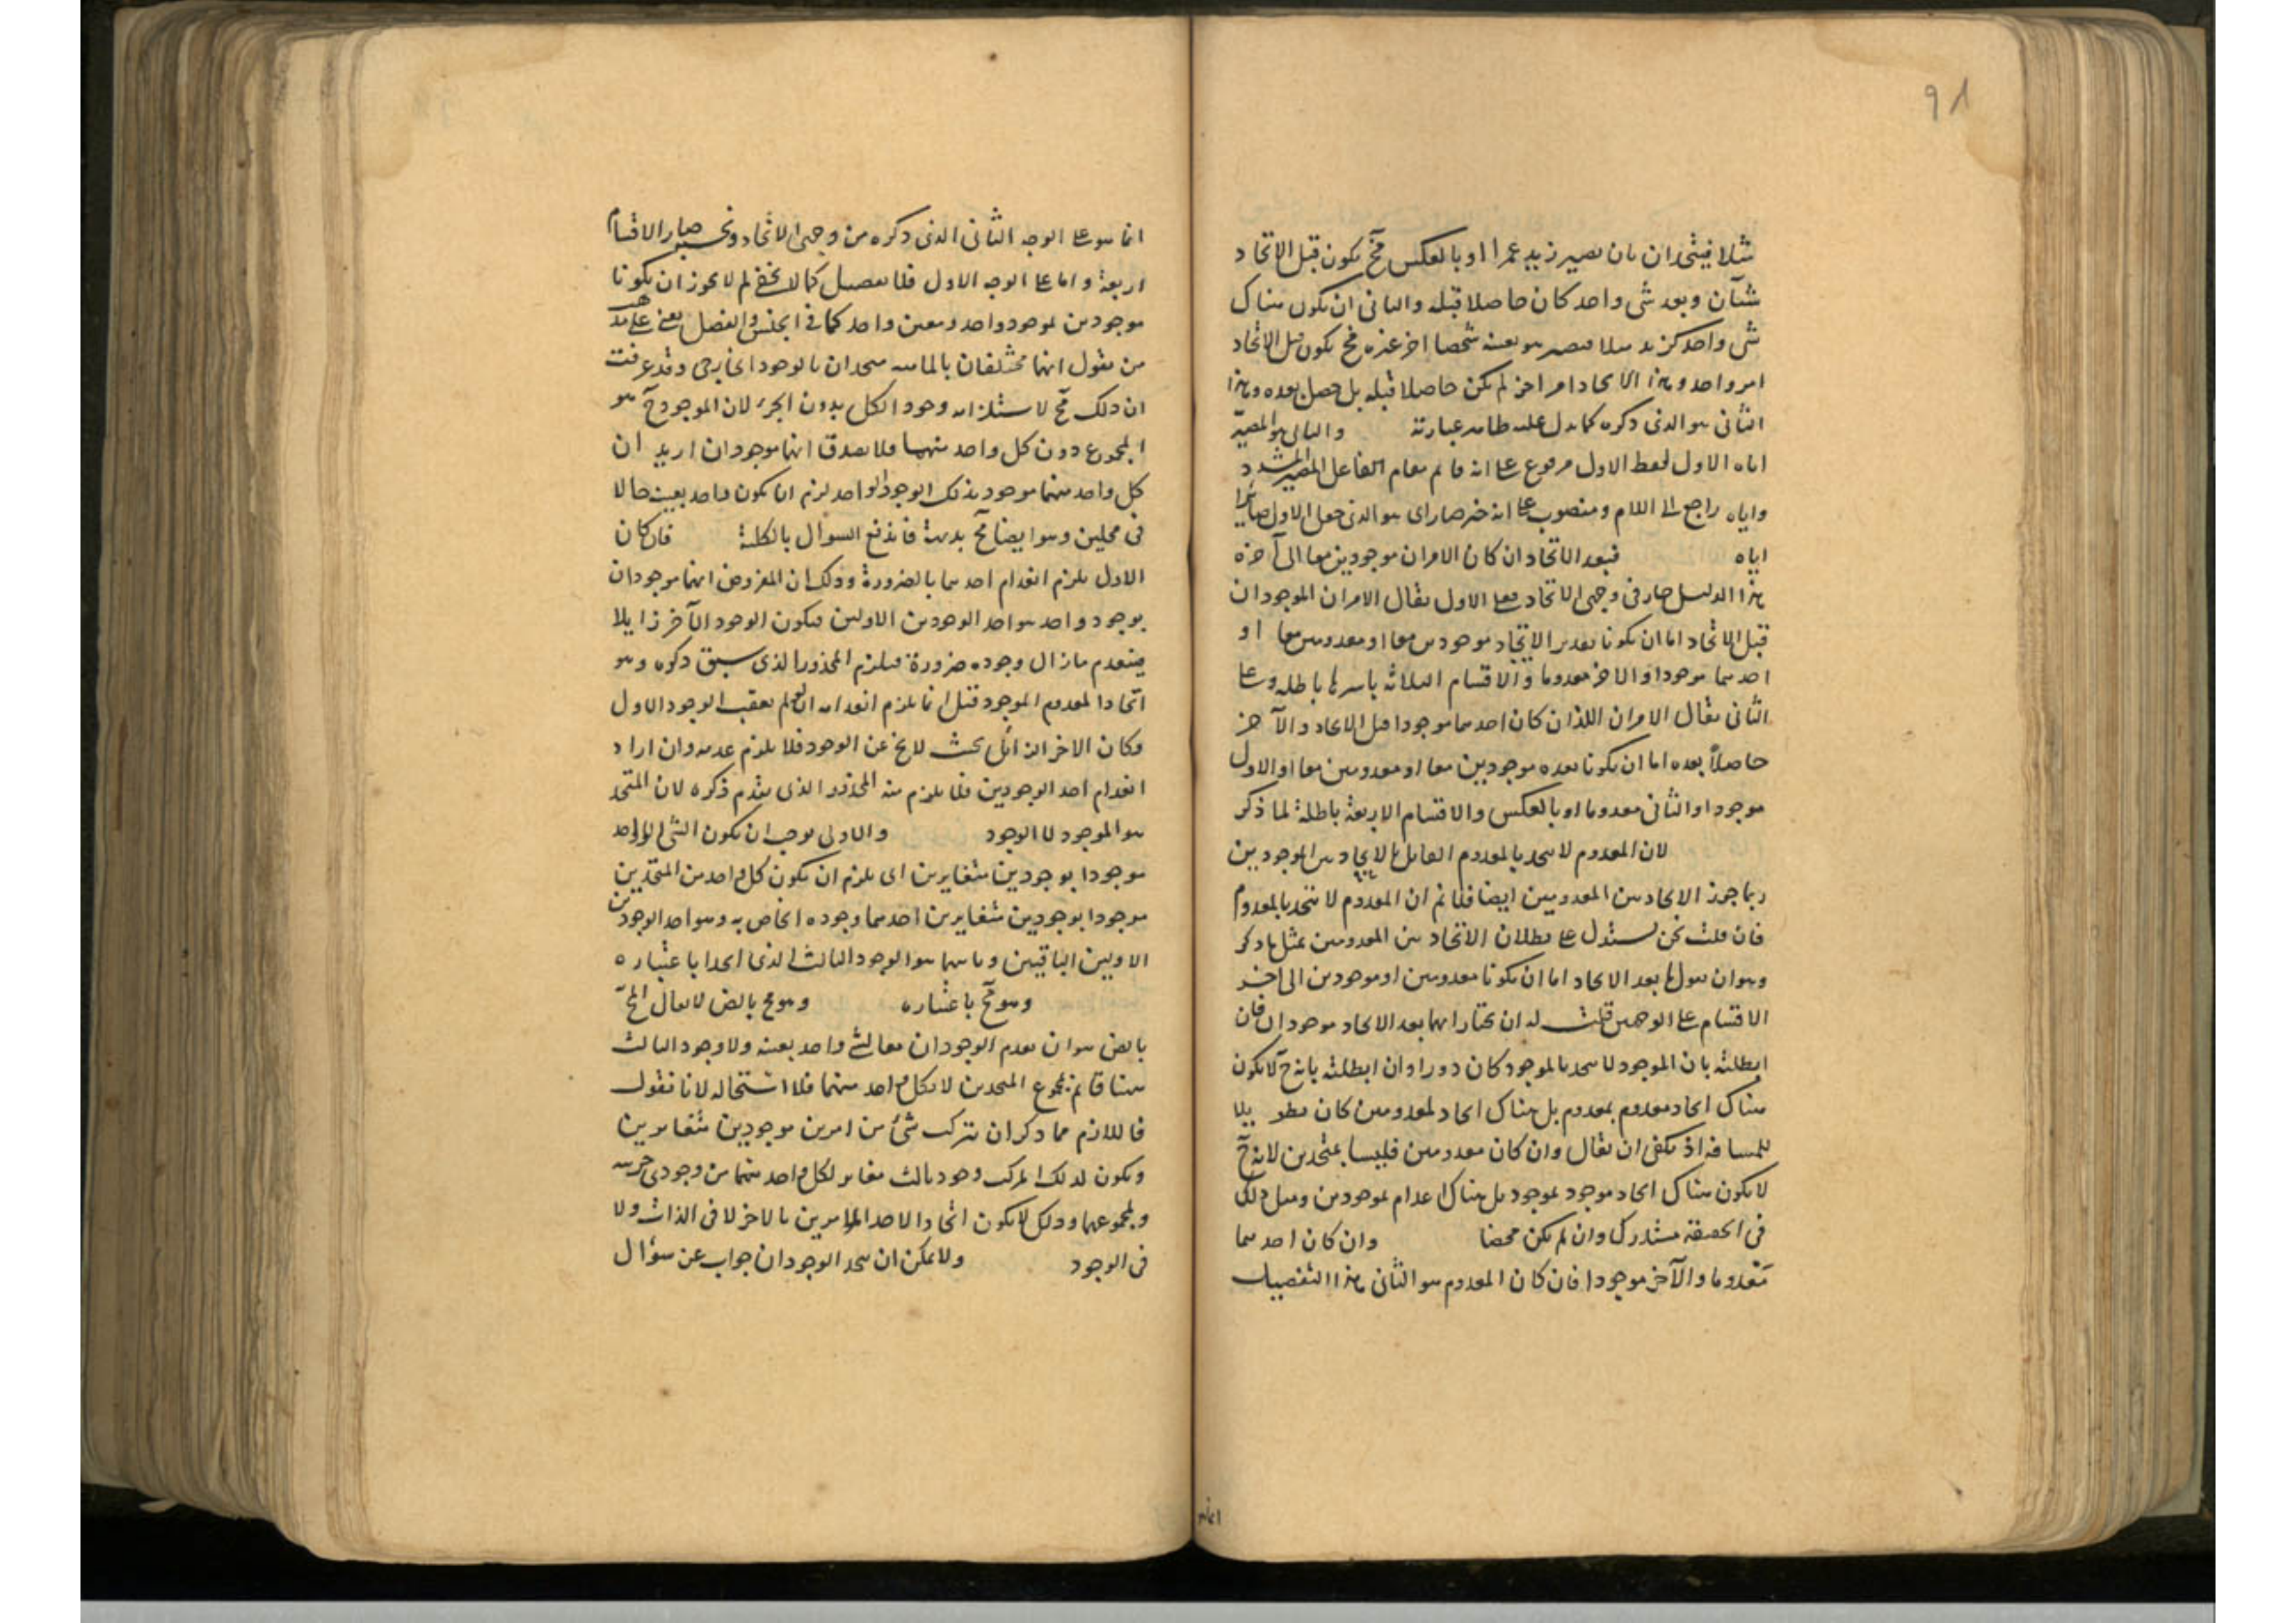 ٩٨
مثلا فيتحدان بان يصير زيد عمرا او بالعكس فح يكون قبل الاتحاد
شيئان وبعده شي واحد كان حاصلا قبله والثاني ان يكون هناك
شي واحد كزيد مثلا فيصير هو بعينه شخصا اخر غيره فح يكون قبل الاتحاد
امر واحد وبعد الاتحاد امر اخر لم يكن حاصلا قبله بل حصل بعده وهذا
الثاني هو الذي ذكره كما يدل عليه ظاهر عبارته والثاني هو المصير
اياه الاول لفظ الاول مرفوع على انه قائم مقام الفاعل للمصير المشدد
واياه راجع الى اللام ومنصوب على انه خبر صار اى هو الذى جعل الاول صائرا
اياه فبعد الاتحاد ان كان الامران موجودين معا الى آخره
هذا الدليل جار فى وجهى الاتحاد فعلى الاول يقال الامران الموجودان
قبل الاتحاد اما ان يكونا بعد الاتحاد موجودين معا او معدومين معا او
احدهما موجودا والاخر معدوما والاقسام الثلاثة باسرها باطلة وعلى
الثاني يقال الامران اللذان كان احدهما موجودا قبل الاتحاد والآخر
حاصلا بعده اما ان يكونا بعده موجودين معا او معدومين معا او الاول
موجودا والثاني معدوما او بالعكس والاقسام الاربعة باطلة لما ذكر
لان المعدوم لا يتحد بالمعدوم القائل بالاتحاد بين الموجودين
ربما جوز الاتحاد بين المعدومين ايضا فلا نم ان المعدوم لا يتحد بالمعدوم
فان قلت نحن نستدل على بطلان الاتحاد بين المعدومين بمثل ما ذكر
وهو ان يقول بعد الاتحاد اما ان يكونا معدومين او موجودين الى اخر
الاقسام على الوجهين قلت له ان يختار انهما بعد الاتحاد موجودان فان
ابطلته بان الموجود لا يتحد بالموجود كان دورا وان ابطلته بانه ح لا يكون
هناك اتحاد معدوم بمعدوم بل هناك ايجاد لمعدومين كان تطويلا
للمسافة اذ يكفى ان يقال وان كان معدومين فليسا بمتحدين لانه ح
لا يكون هناك اتحاد موجود بموجود بل هناك اعدام لموجودين ومثل ذلك
فى الحقيقة مستدرك وان لم يكن محضا وان كان احدهما
معدوما والآخر موجودا فان كان المعدوم هو الثانى هذا التفصيل
انما هو على الوجه الثانى الذى ذكره من وجهى الاتحاد وبه صار الاقسام
اربعة واما على الوجه الاول فلا تفصيل كما لا يخفى لم لا يجوز ان يكونا
موجودين لوجود واحد ومعين واحد كما فى الجنس والفصل يعنى على مذهب
من يقول انهما مختلفان بالماهية متحدان بالوجود الخارجى وقد عرفت
ان ذلك مح لاستلزامه وجود الكل بدون الجزء لان الموجود ح هو
المجموع دون كل واحد منهما فلا يصدق انهما موجودان اريد ان
كل واحد منهما موجود بذلك الوجود الواحد لزم ان يكون واحد بعينه حالا
فى محلين وهو ايضا مح بديهة فاندفع السؤال بالكلية فان كان
الاول يلزم انعدام احدهما بالضرورة وذلك ان المفروض انهما موجودان
بوجود واحد هو احد الوجودين الاولين فيكون الوجود الآخر زايلا
فينعدم ما زال وجوده ضرورة فيلزم المحذور الذى سبق ذكره وهو
اتحاد المعدوم الموجود قيل انما يلزم انعدامه ان لم يعقب الوجود الاول
وكان الاخر الزائل بحيث لا يخ عن الوجود فلا يلزم عدمه وان اراد
انعدام احد الوجودين فلا يلزم منه المحذور الذى تقدم ذكره لان المتحد
هو الموجود لا الوجود والاولى يوجب ان يكون الشئ الواحد
موجودا بوجودين متغايرين اى يلزم ان يكون كل واحد من المتحدين
موجودا بوجودين متغايرين احدهما وجوده الخاص به وهو احد الوجودين
الاولين الباقيين وثانيهما هو الوجود الثالث الذى اتحدا باعتباره
وهو مح باعتباره وهو مح بالض لا يقال المح
بالض هو ان يقوم الوجودان معا لشئ واحد بعينه ولا وجود الثالث
هنا قائم بمجموع المتحدين لا بكل واحد منهما فلا استحالة لانا نقول
فاللازم مما ذكر ان يتركب شئ من امرين موجودين متغايرين
ويكون لذلك المركب وجود ثالث مغاير لكل واحد منهما من وجودى جزئيه
ولمجموعهما وذلك لا يكون اتحادا لاحد الامرين بالاخر لا فى الذات ولا
فى الوجود ولا يمكن ان يتحد الوجودان جواب عن سؤال